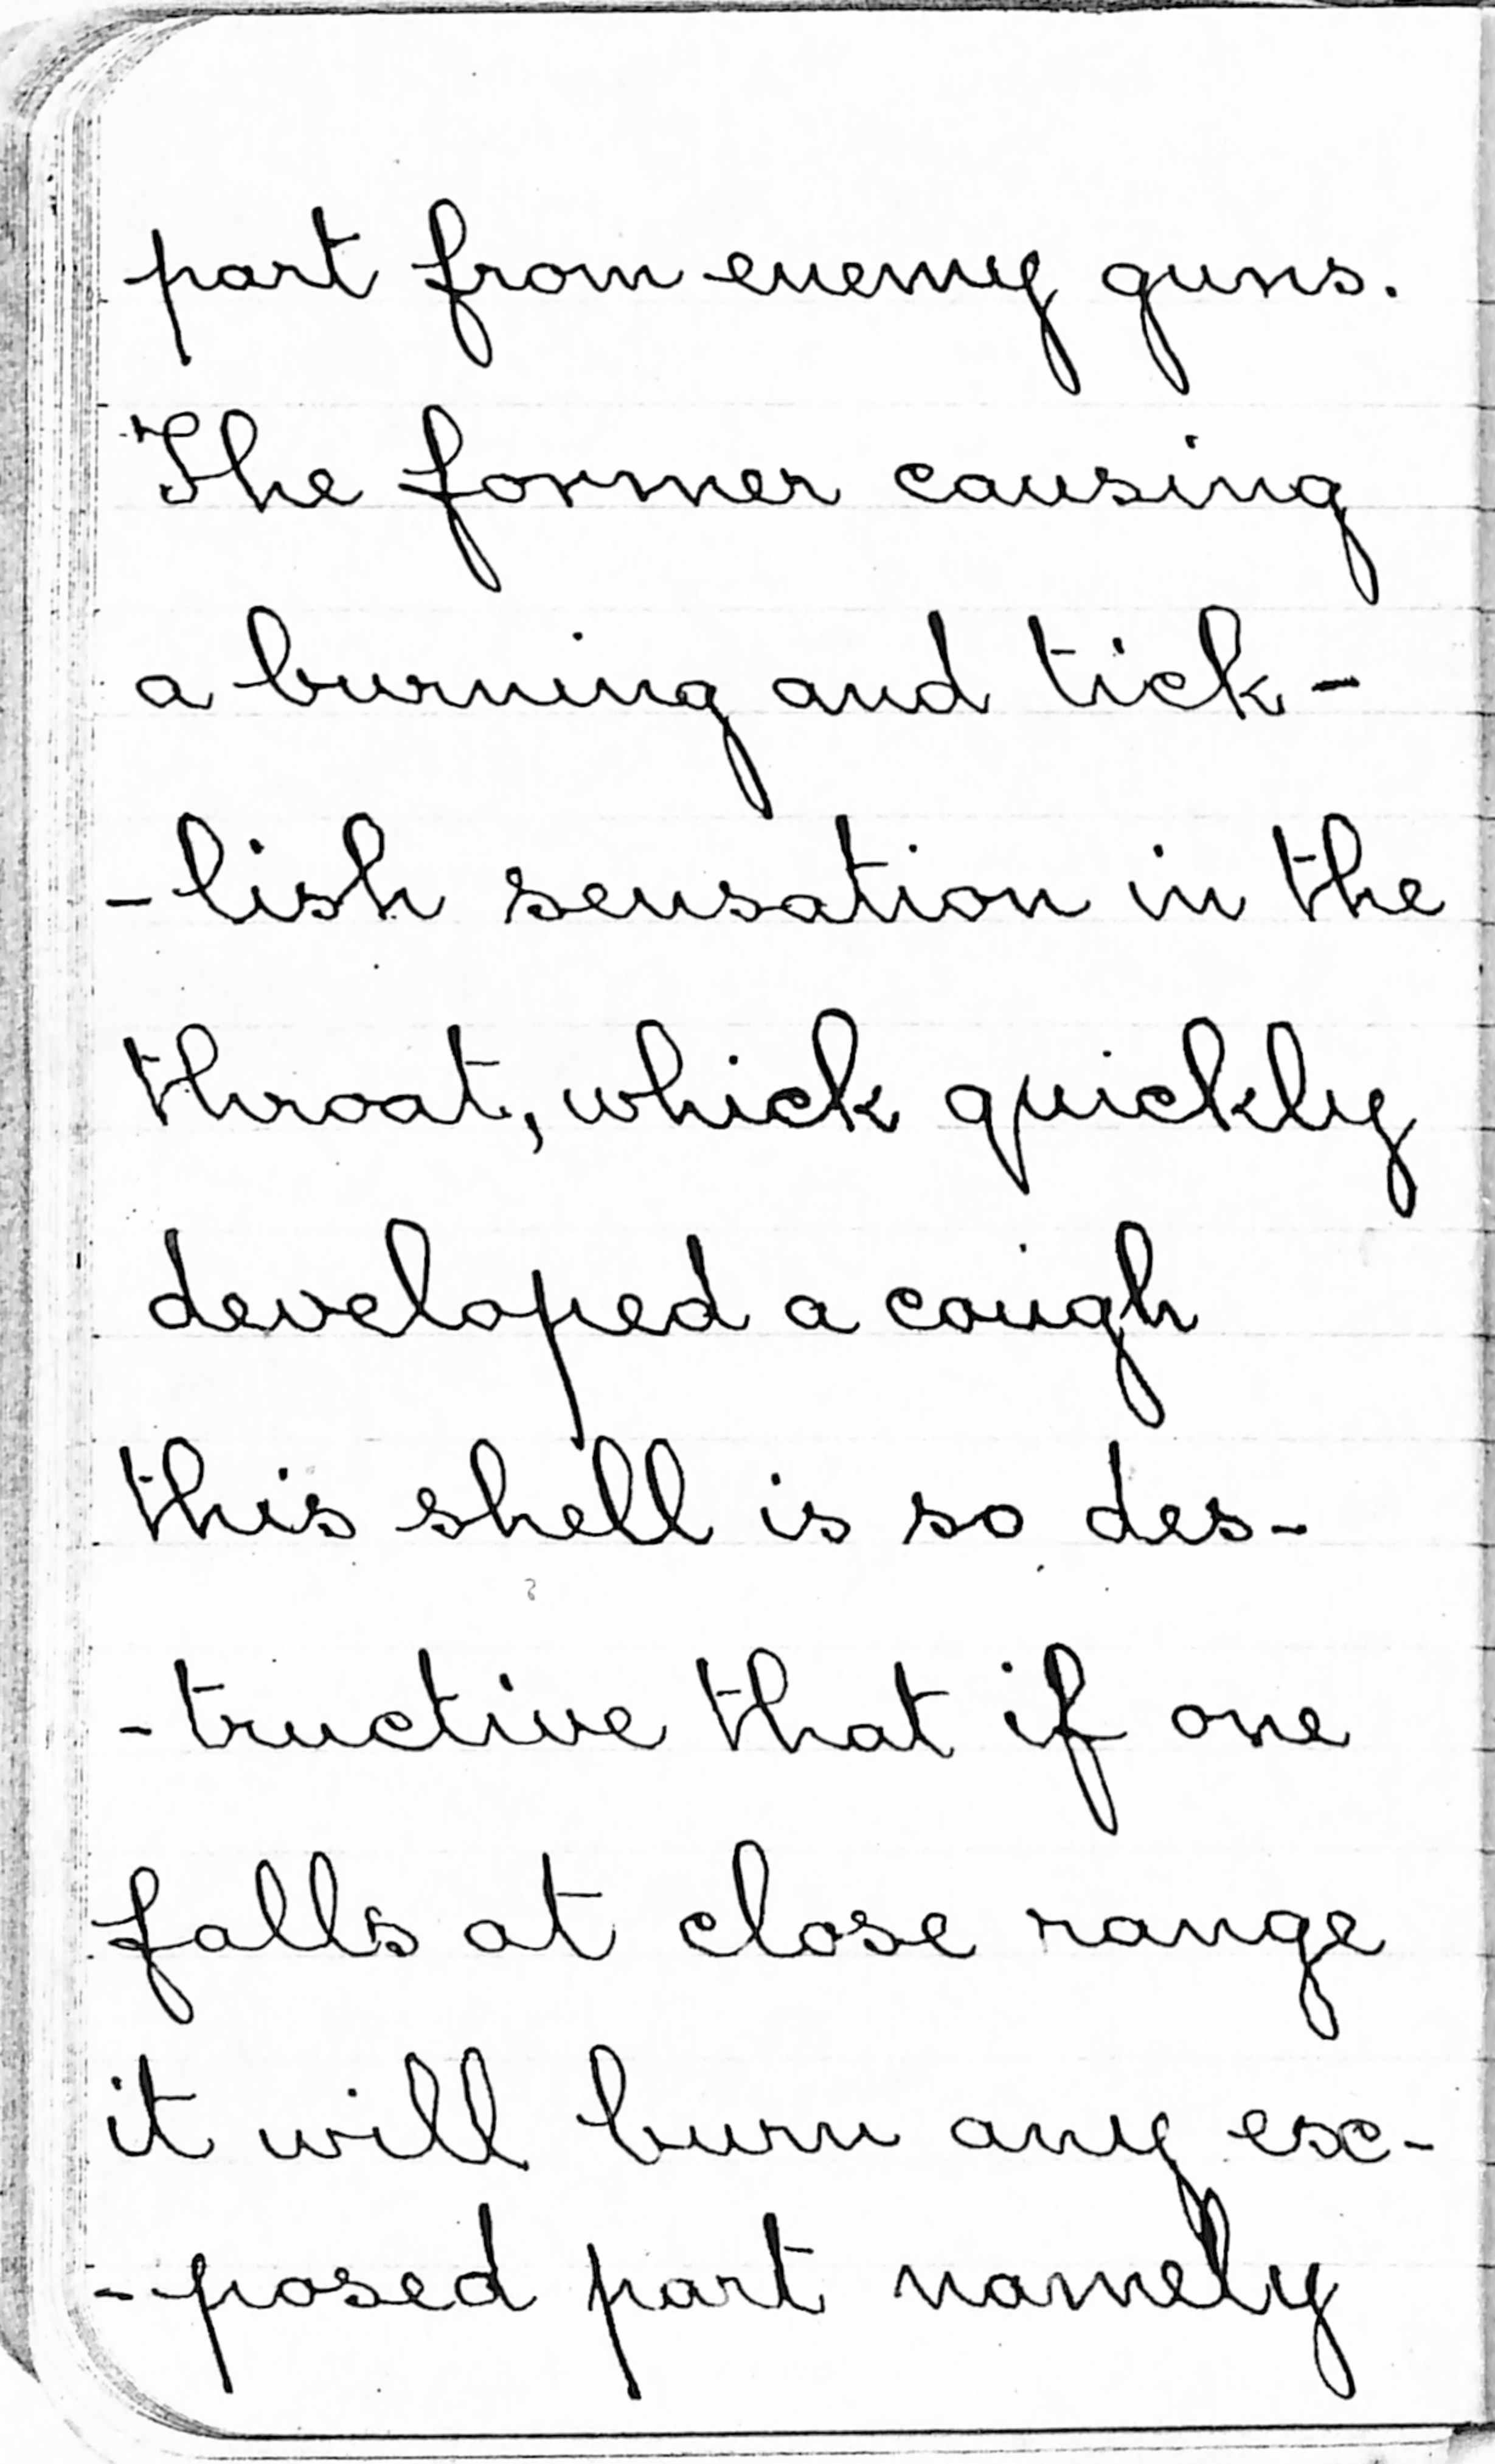 part from enemy guns.
The former causing
a burning and tick-
-lish sensation in the
throat, which quickly
developed a cough
this shell is so des-
-tructive that if one
falls at close range
it will burn any ex-
-posed part namely